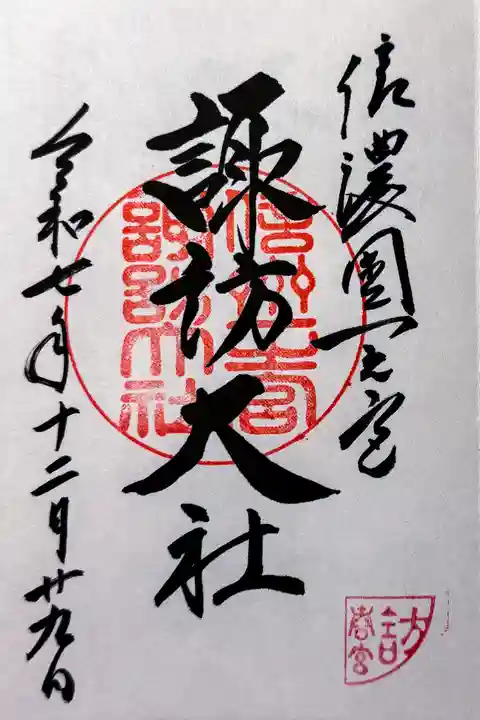 信濃國一之宮
諏訪大社
令和七年十二月廿九日
信州一之宮
諏訪大社
諏訪
春宮